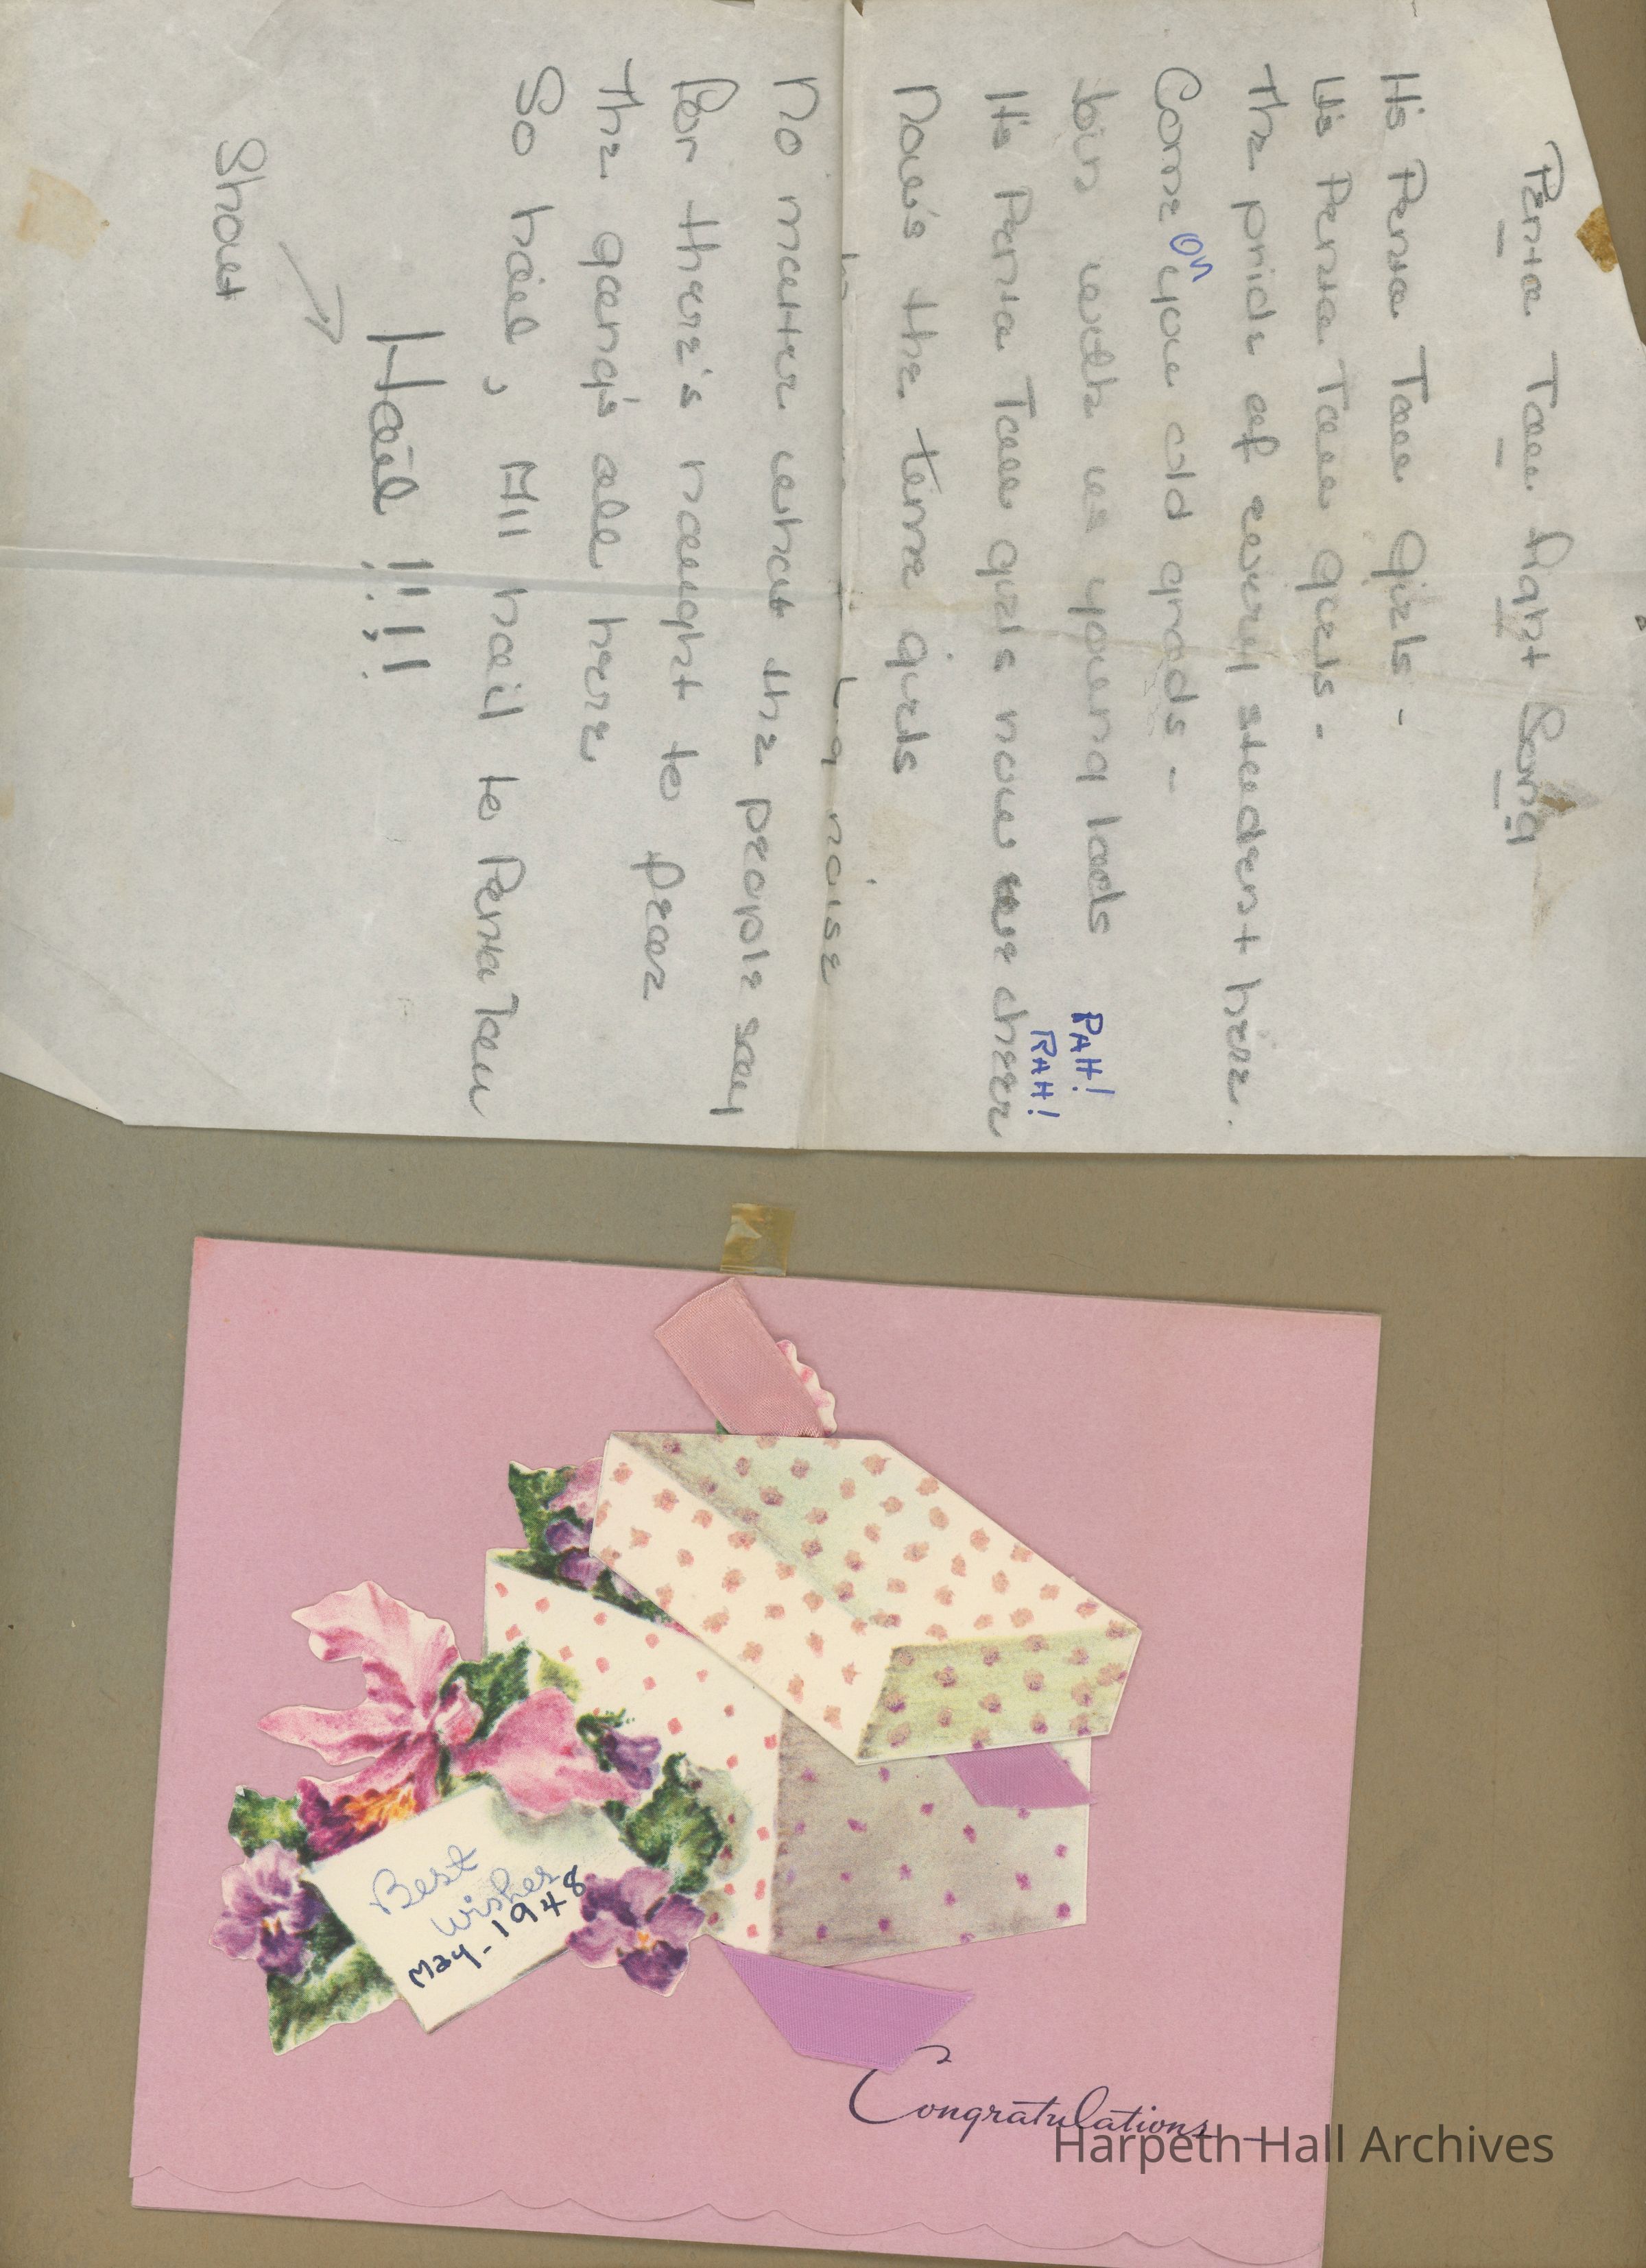 Penta Tau Fight Song
It's Penta Tau Girls -
It's Penta Tau girls -
The pride of every student here.
Come on you old grads -
Join with us young lads
RAH!
RAH!
It's Penta Tau girls now we cheer
Now's the time girls
noise
No matter what the people say
For there's naught to fear
The gang's all here
So hail, All hail to Penta Tau
Hail !!!!
Shout
Best
Wishes
May - 1948
Congratulations
Harpeth Hall Archives